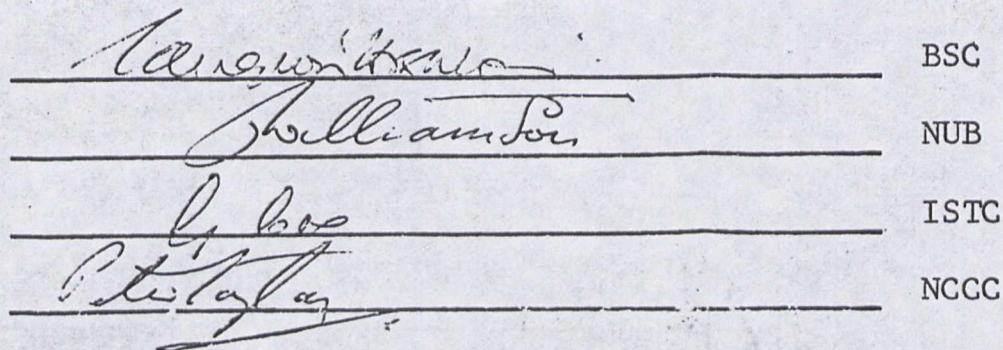 BSC
Williamson NUB
ISTC
Peter Taylor NCCC